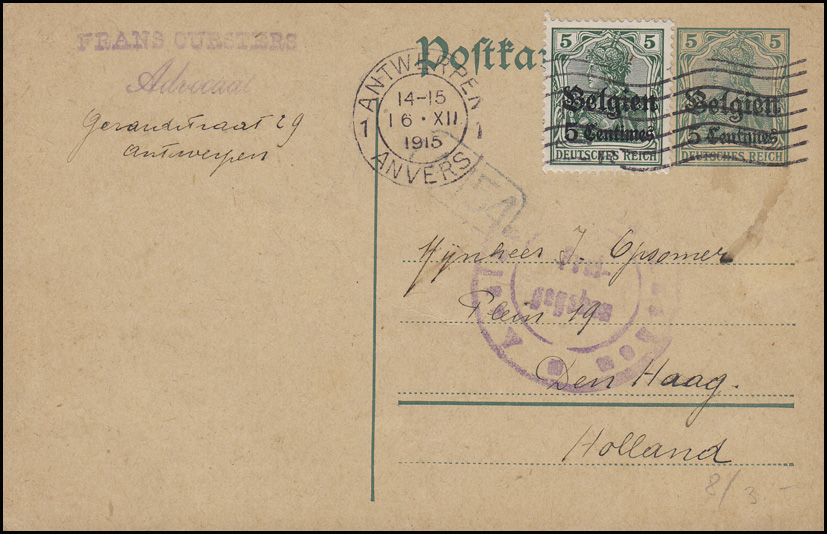 FRANS CURSTERS
Advocaat
Gerardstraat 29
Antwerpen
Postka
ANTWERPEN
14-15
16 · XII
1915
1 1
ANVERS
5 5
Belgien
5 Centimes
DEUTSCHES REICH
5 5
Belgien
5 Centimes
DEUTSCHES REICH
54
Mijnheer J. Opsomer
Plein 19
Den Haag.
Holland
8/3 -